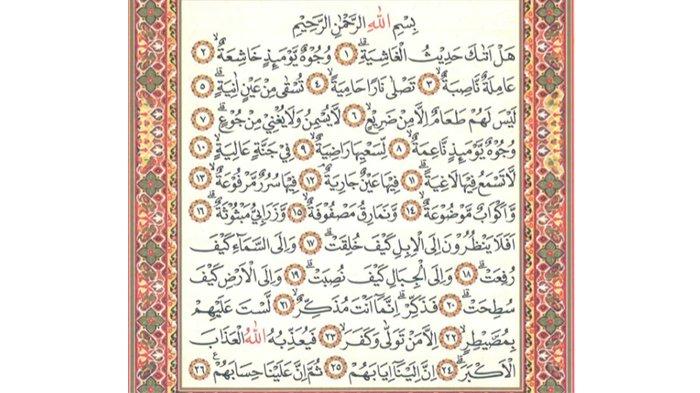 بِسْمِ اللهِ الرَّحْمٰنِ الرَّحِيْمِ
هَلْ اَتٰىكَ حَدِيْثُ الْغَاشِيَةِۗ ١ وُجُوْهٌ يَّوْمَىِٕذٍ خَاشِعَةٌ ۙ ٢
عَامِلَةٌ نَّاصِبَةٌ ۙ ٣ تَصْلٰى نَارًا حَامِيَةً ۙ ٤ تُسْقٰى مِنْ عَيْنٍ اٰنِيَةٍ ۗ ٥
لَيْسَ لَهُمْ طَعَامٌ اِلَّا مِنْ ضَرِيْعٍ ۙ ٦ لَّا يُسْمِنُ وَلَا يُغْنِيْ مِنْ جُوْعٍ ۗ ٧
وُجُوْهٌ يَّوْمَىِٕذٍ نَّاعِمَةٌ ۙ ٨ لِّسَعْيِهَا رَاضِيَةٌ ۙ ٩ فِيْ جَنَّةٍ عَالِيَةٍ ۙ ١٠
لَّا تَسْمَعُ فِيْهَا لَاغِيَةً ۗ ١١ فِيْهَا عَيْنٌ جَارِيَةٌ ۘ ١٢ فِيْهَا سُرُرٌ مَّرْفُوْعَةٌ ۙ ١٣
وَّاَكْوَابٌ مَّوْضُوْعَةٌ ۙ ١٤ وَّنَمَارِقُ مَصْفُوْفَةٌ ۙ ١٥ وَّزَرَابِيُّ مَبْثُوْثَةٌ ۗ ١٦
اَفَلَا يَنْظُرُوْنَ اِلَى الْاِبِلِ كَيْفَ خُلِقَتْ ۗ ١٧ وَاِلَى السَّمَاۤءِ كَيْفَ
رُفِعَتْ ۗ ١٨ وَاِلَى الْجِبَالِ كَيْفَ نُصِبَتْ ۗ ١٩ وَاِلَى الْاَرْضِ كَيْفَ
سُطِحَتْ ۗ ٢٠ فَذَكِّرْ ۗ اِنَّمَآ اَنْتَ مُذَكِّرٌ ۙ ٢١ لَسْتَ عَلَيْهِمْ
بِمُصَۜيْطِرٍ ۙ ٢٢ اِلَّا مَنْ تَوَلّٰى وَكَفَرَ ۙ ٢٣ فَيُعَذِّبُهُ اللهُ الْعَذَابَ
الْاَكْبَرَ ۗ ٢٤ اِنَّ اِلَيْنَآ اِيَابَهُمْ ۙ ٢٥ ثُمَّ اِنَّ عَلَيْنَا حِسَابَهُمْ ࣖ ٢٦